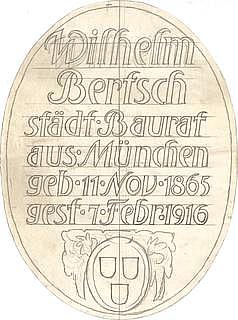 Wilhelm
Bertsch
städt·Baurat
aus·München
geb·11·Nov·1865
gest·7·Febr·1916